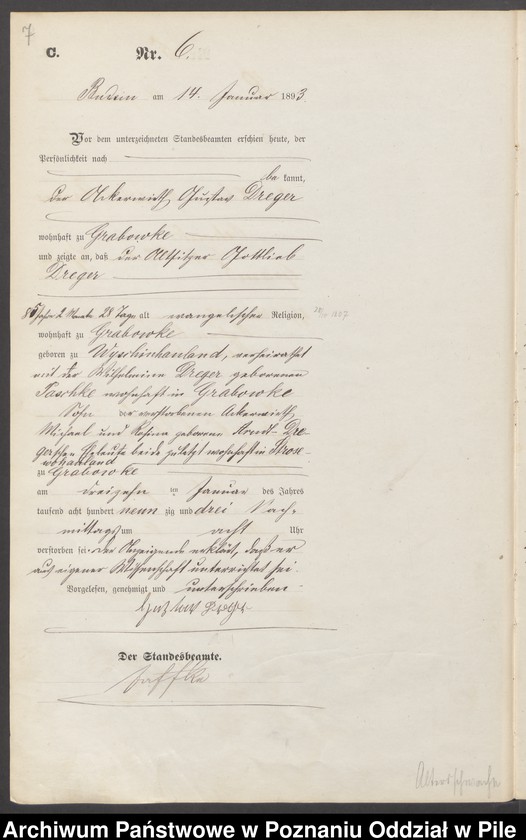 7
C. Nr. 6.
am 14. Januar 1893.
Vor dem unterzeichneten Standesbeamten erschien heute, der
Persönlichkeit nach
be kannt,
der Ackerwirth Gustav Dreger
wohnhaft zu Grabowke
und zeigte an, daß der Altsitzer Gottlieb
Dreger
85 Jahr 2 Monate 28 Tage alt evangelischer Religion,
wohnhaft zu Grabowke
geboren zu Wyschinhauland, verheirathet
mit der Wilhelmine Dreger geborenen
Paschke wohnhaft in Grabowke
Sohn der verstorbenen Ackerwirth
Michael und Rosina geborene Arndt - Dre-
gerschen Eheleute beide zuletzt wohnhaft in
zu Grabowke
am dreizehn ten Januar des Jahres
tausend acht hundert neun zig und drei Nach-
mittags um acht Uhr
verstorben sei. Der Anzeigende erklärt, daß er
aus eigener Wissenschaft unterrichtet sei.
Vorgelesen, genehmigt und unterschrieben
Gustav Dreger
Der Standesbeamte.
Altersschwäche
Archiwum Państwowe w Poznaniu Oddział w Pile